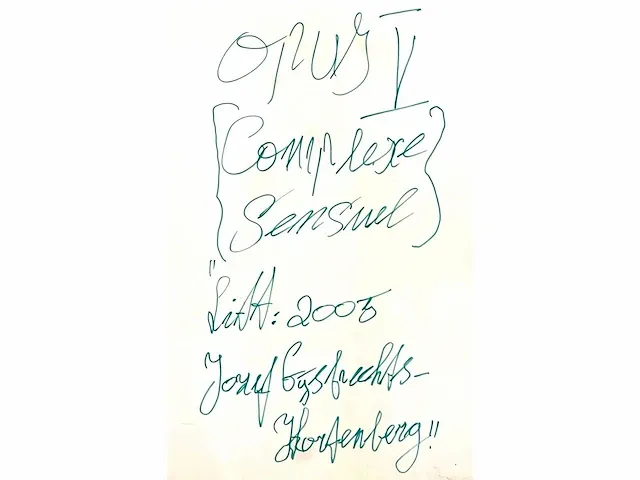 OPUS V
{Complexe
Sensuel}
"Litt: 2005
Jozef Gysbrechts-
Kortenberg"